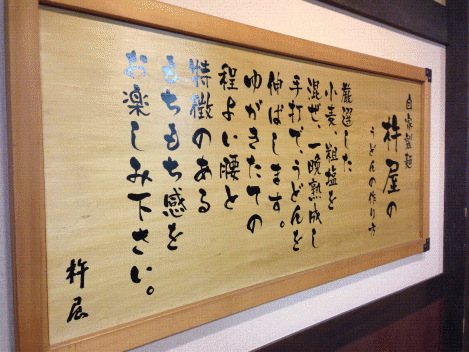 自家製麺
杵屋の
うどんの作り方
厳選した
小麦、粗塩を
混ぜ、一晩熟成し
手打で、うどんを
伸ばします。
ゆがきたての
程よい腰と
特徴のある
もちもち感を
お楽しみ下さい。
杵屋